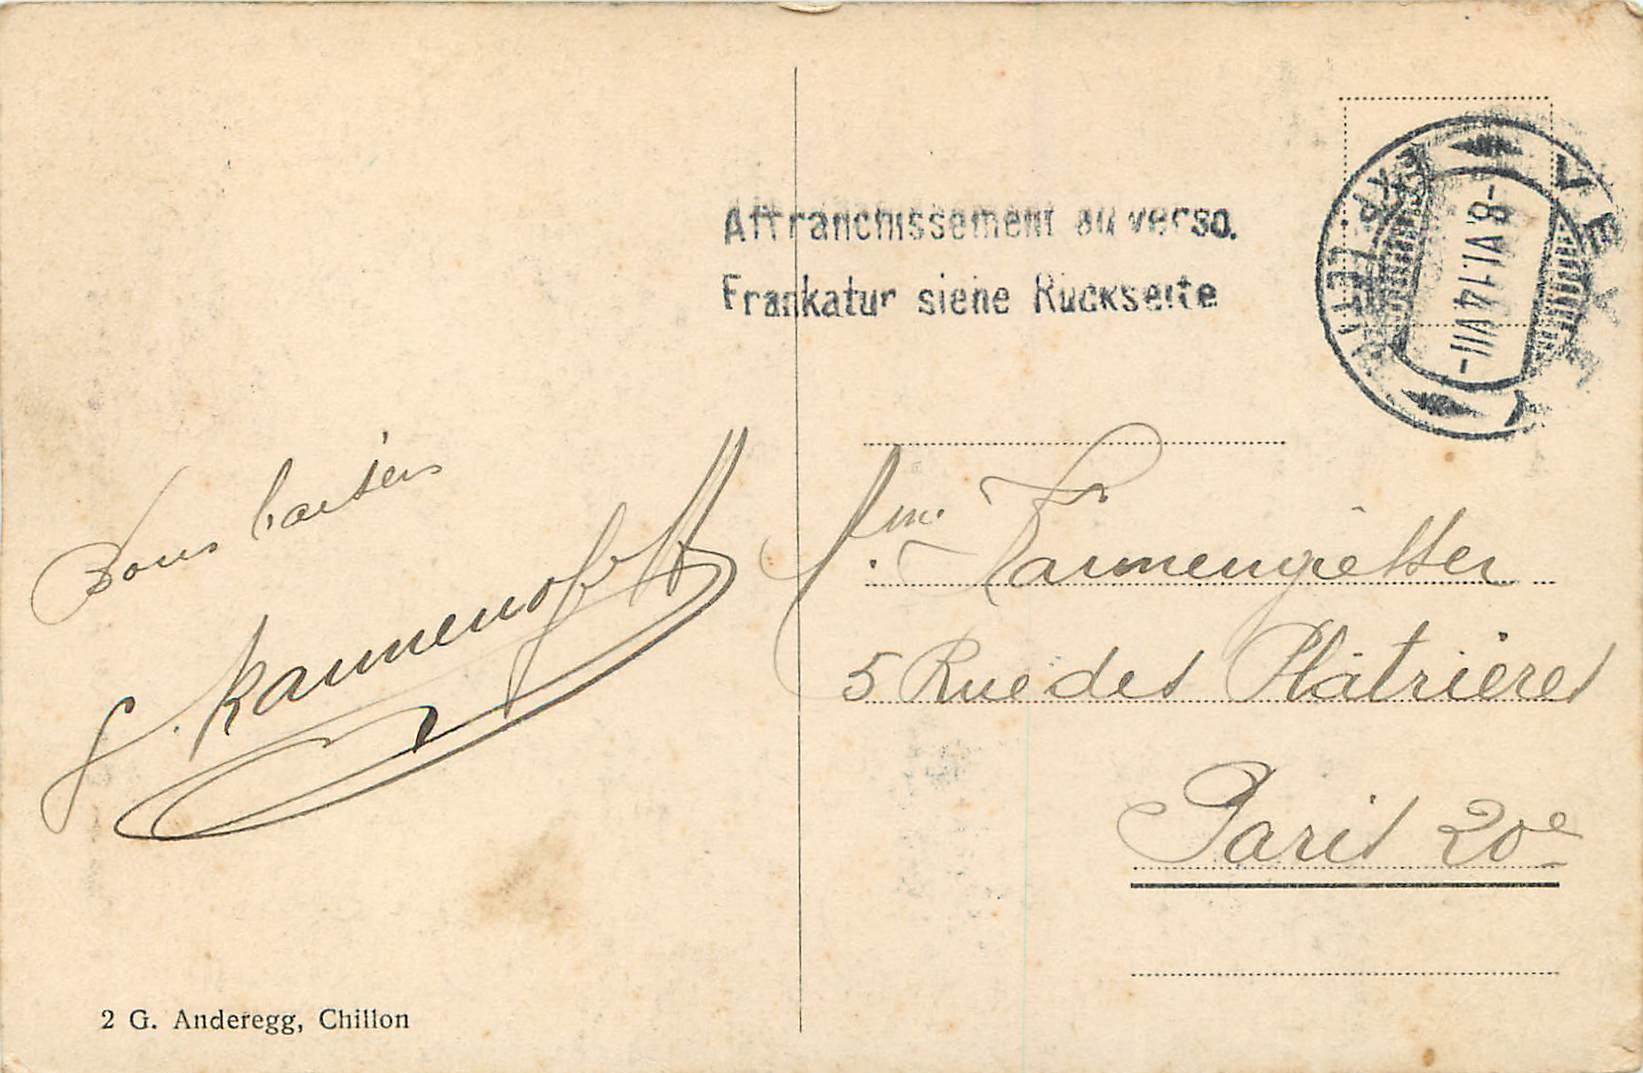 Affranchissement au verso.
Frankatur siehe Rückseite
VEVEY
-8.VI.14.VII-
Bons baisers
5 Rue des Plâtrières
Paris 20e
2 G. Anderegg, Chillon